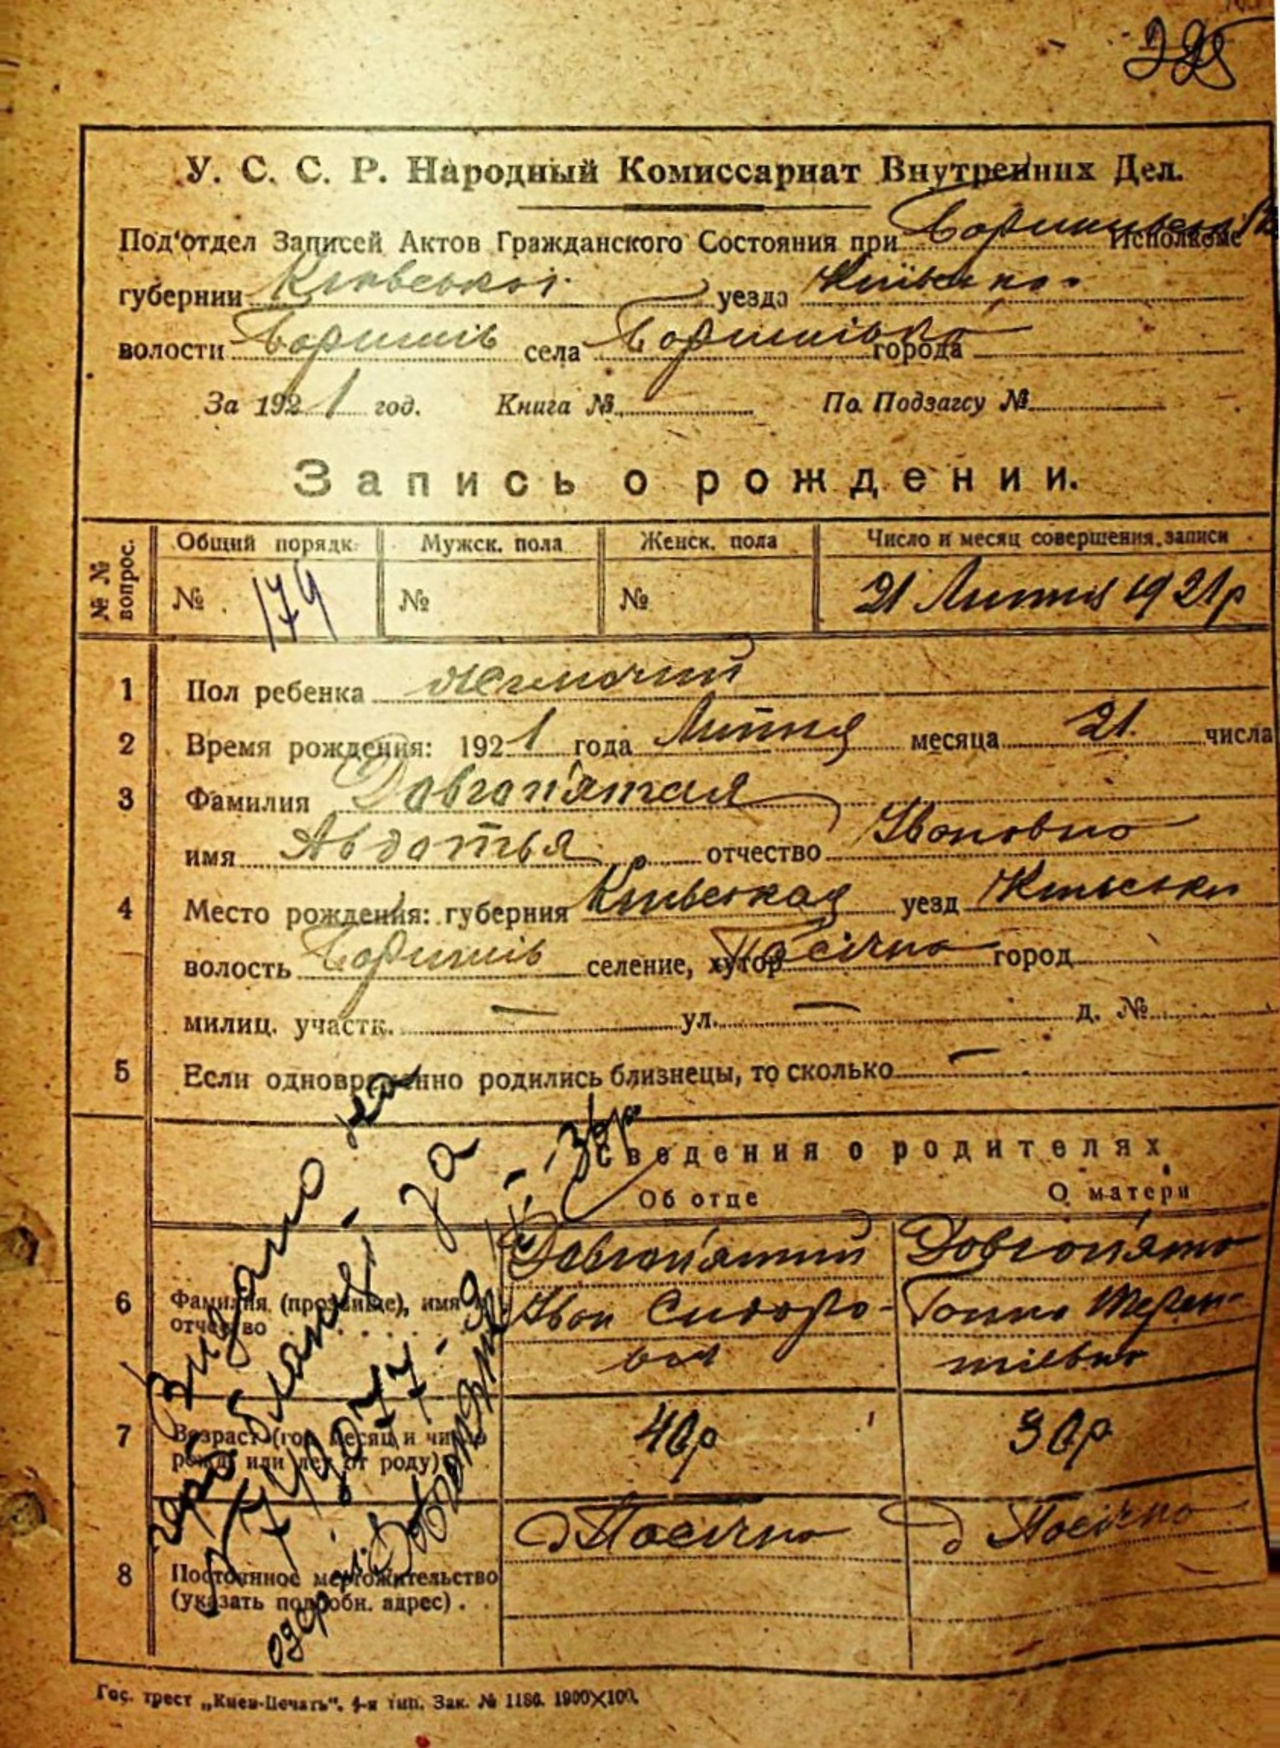 225
У. С. С. Р. Народный Комиссариат Внутренних Дел.
Под'отдел Записей Актов Гражданского Состояния при Исполкоме
губернии Київської уезда Київсько
волости села города
За 1921 год. Книга № По Подзагсу №
Запись о рождении.
№ № вопрос. Общий порядк. Мужск. пола Женск. пола Число и месяц совершения записи
№ 179 № № 21 Липня 1921р
1 Пол ребенка Жиночий
2 Время рождения: 1921 года Липня месяца 21. числа
3 Фамилия Довгоп'ятая
имя Авдотья отчество Ивановно
4 Место рождения: губерния Киівская уезд
волость селение, хутор Посічно город
милиц. участк. — ул. — д. №
5 Если одновременно родились близнецы, то сколько —
Сведения о родителях
Об отце О матери
6 Фамилия (прозвище), имя и отчество
Довгоп'ятий Довгоп'ято
Иван Сидоро- Терен-
вич тіевна
7 Возраст (год, месяц и число рожд. или лет от роду)
40р 30р
8 Постоянное местожительство (указать подробн. адрес).
д Посічно д Посічно
Видано на
за
Гос. трест „Киев-Печать". 4-я тип. Зак. № 1186. 1900×100.